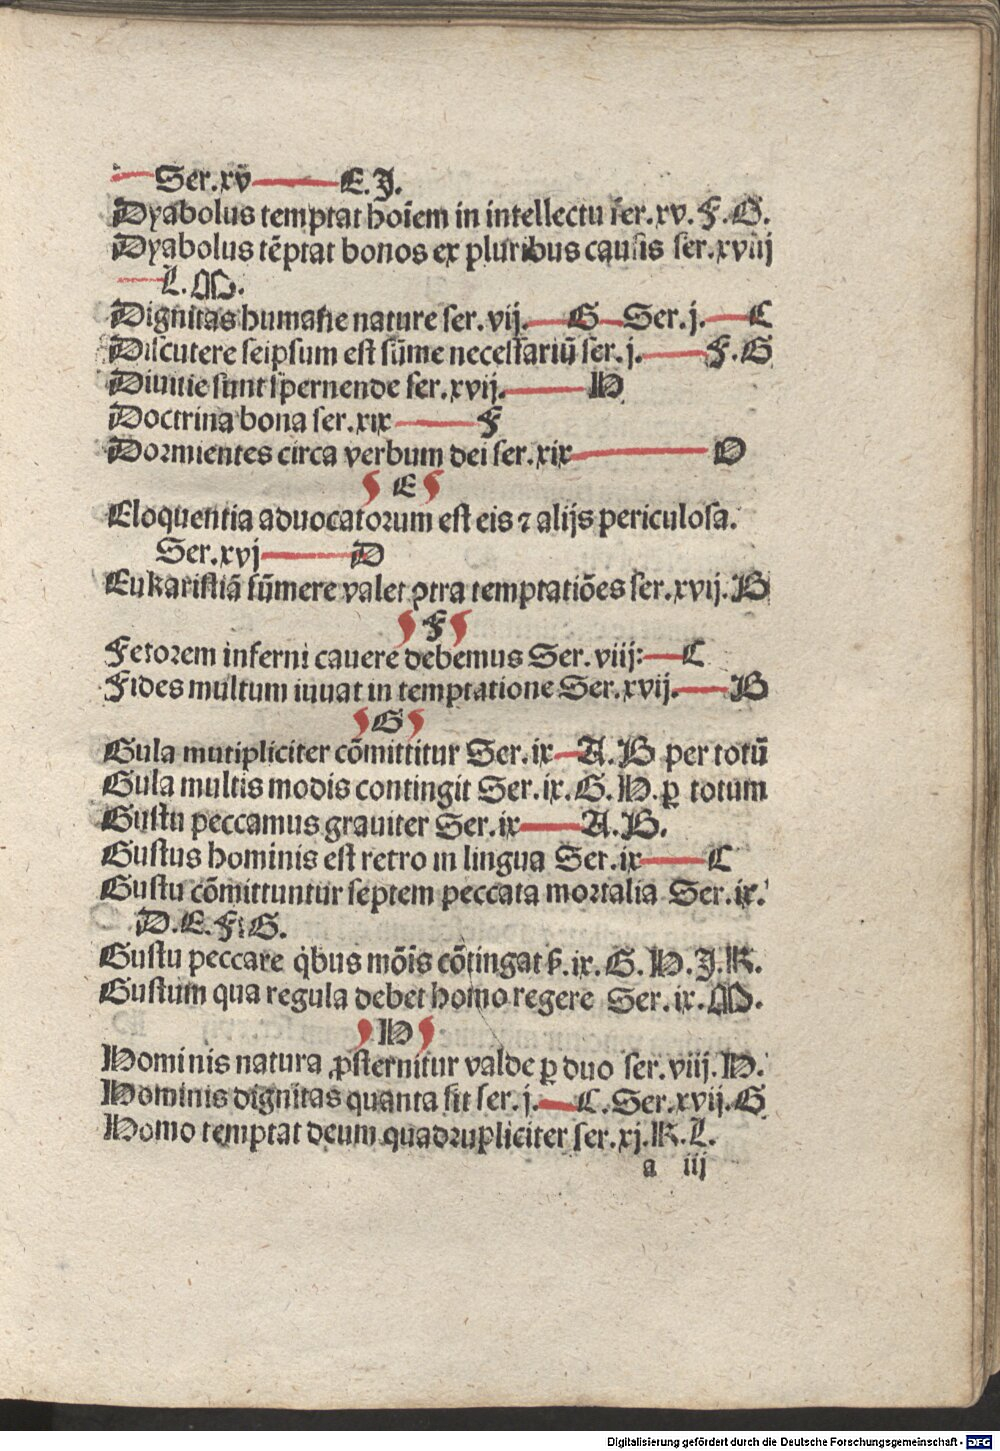 Ser.xv E.J.
Dyabolus temptat hoīem in intellectu ſer.xv.F.G.
Dyabolus tēptat bonos ex pluribus cauſis ſer.xviij
L.M.
Dignitas humane nature ſer.vij. G Ser.j. C
Diſcutere ſeipſum eſt ſūme neceſſariū ſer.j. F.G
Diuitie ſunt ſpernende ſer.xvij. H
Doctrina bona ſer.xix F
Dormientes circa verbum dei ſer.xix O
E
Eloquentia aduocatorum eſt eis ⁊ alijs periculoſa.
Ser.xvj D
Eukariſtiā ſūmere valet ꝯtra temptatiōes ſer.xvij.B
F
Fetorem inferni cauere debemus Ser.viij: C
Fides multum iuuat in temptatione Ser.xvij. B
G
Gula mutipliciter cōmittitur Ser.ix A.B per totū
Gula multis modis contingit Ser.ix.G.H.ꝑ totum
Guſtu peccamus grauiter Ser.ix A.B.
Guſtus hominis eſt retro in lingua Ser.ix C
Guſtu cōmittuntur ſeptem peccata mortalia Ser.ix.
D.E.F.G.
Guſtu peccare q̇bus mōis cōtingat ẜ.ix.G.H.J.K.
Guſtum qua regula debet homo regere Ser.ix.M.
H
Hominis natura ꝓſternitur valde ꝑ duo ſer.viij.H.
Hominis dignitas quanta ſit ſer.j. C.Ser.xvij.G
Homo temptat deum quadrupliciter ſer.xj.K.L.
a iij
Digitalisierung gefördert durch die Deutsche Forschungsgemeinschaft - DFG